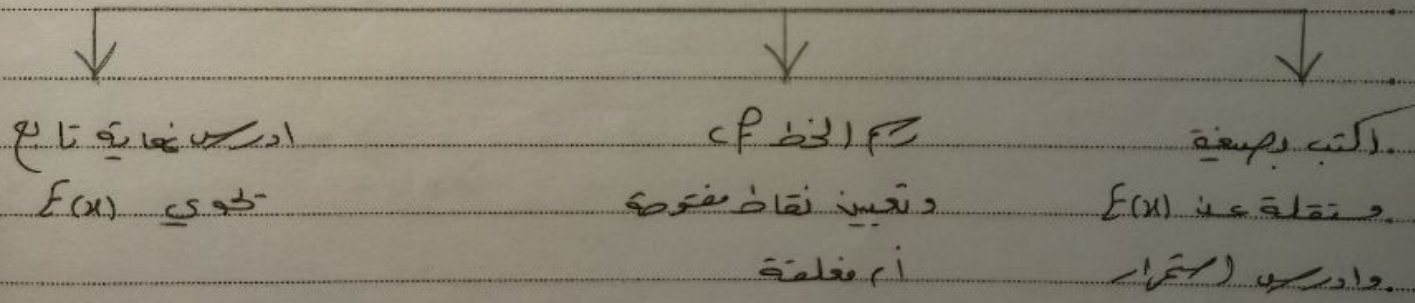 اكتب بصيغة
مستقلة عن E(x)
وادرس استمرار
رسم الخط cf
وتعيين نقاط مفتوحة
أم مغلقة
ادرس نهاية تابع
تحوي E(x)